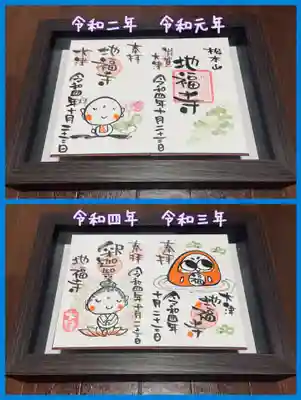 令和二年
令和元年
奉拝
地福寺
大津
令和四年十月二十三日
松本山
地福寺
奉拝
令和四年十月二十三日
令和四年
令和三年
奉拝
釈迦如来
地福寺
令和四年十月二十三日
奉拝
福
大津
地福寺
令和四年
十月二十三日